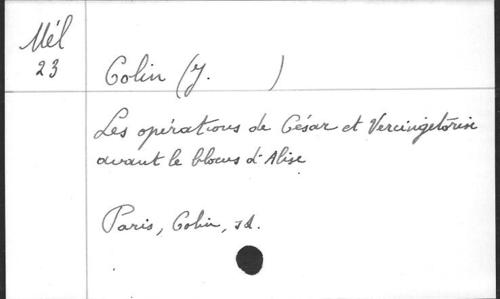 Mél
23
Colin (J. )
Les opérations de César et Vercingétorix
avant le blocus d'Alise
Paris, Colin, sd.